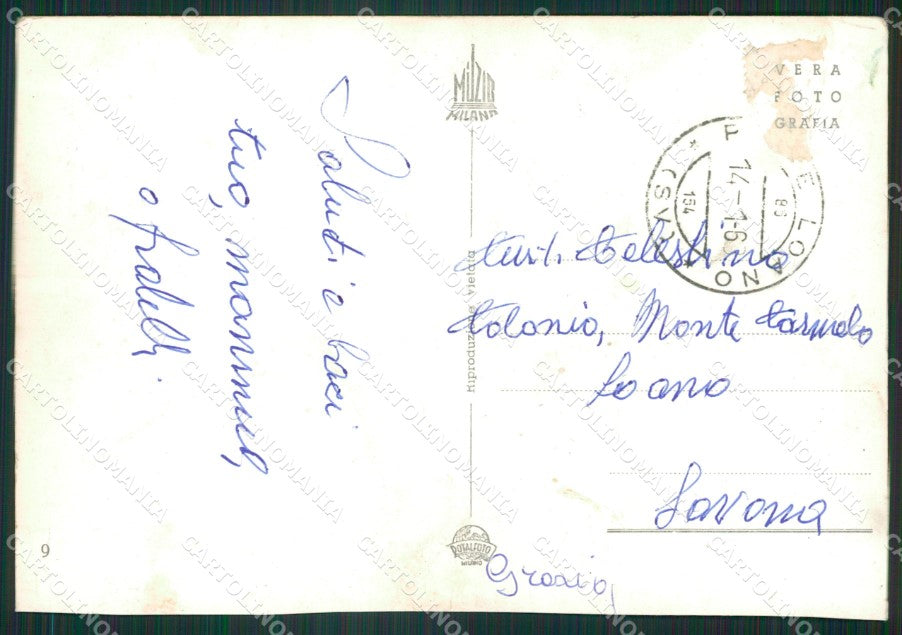 MUZIO
MILANO
VERA
FOTO
GRAFIA
LOANO
(SV)
14-1-6
154
Saluti e baci
tuo, mammol,
e fratelli
Celestino
Colonia, Monte Carmelo
Loano
Savona
Grazia,
Riproduzione vietata
ROTALFOTO
MILANO
9
CARTOLINOMANIA